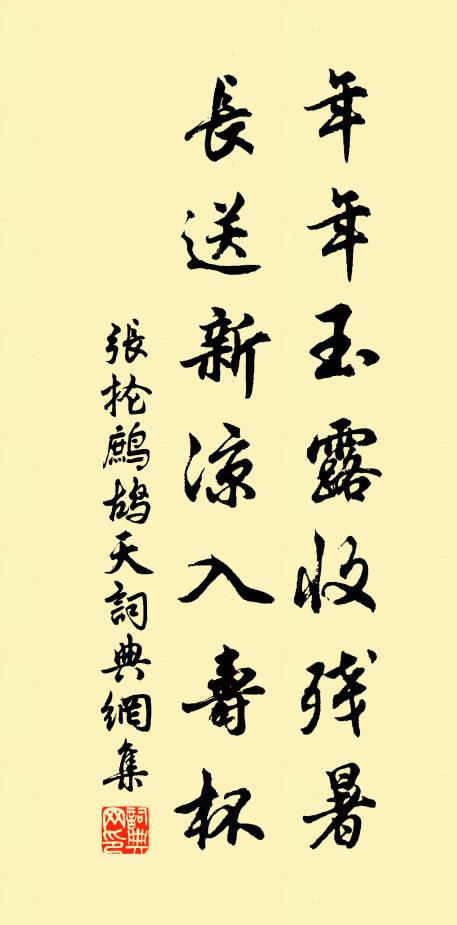 年年玉露收残暑
長送新涼入壽杯
張抡鷓鴣天詞典網集
詞典网印